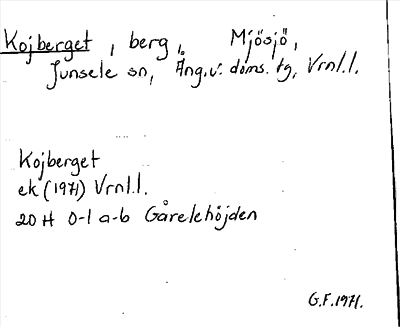 Kojberget, berg, Mjösjö,
Junsele sn, Ång.v: doms. tg, Vrnl.l.
Kojberget
ek (1971) Vrnl.l.
20 H 0-1 a-b Gårelehöjden
G.F. 1971.